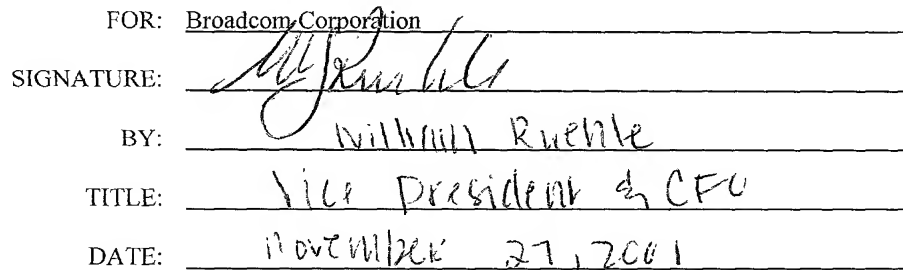 FOR: Broadcom Corporation
SIGNATURE:
BY: William Ruehle
TITLE: Vice President & CFO
DATE: November 27, 2001